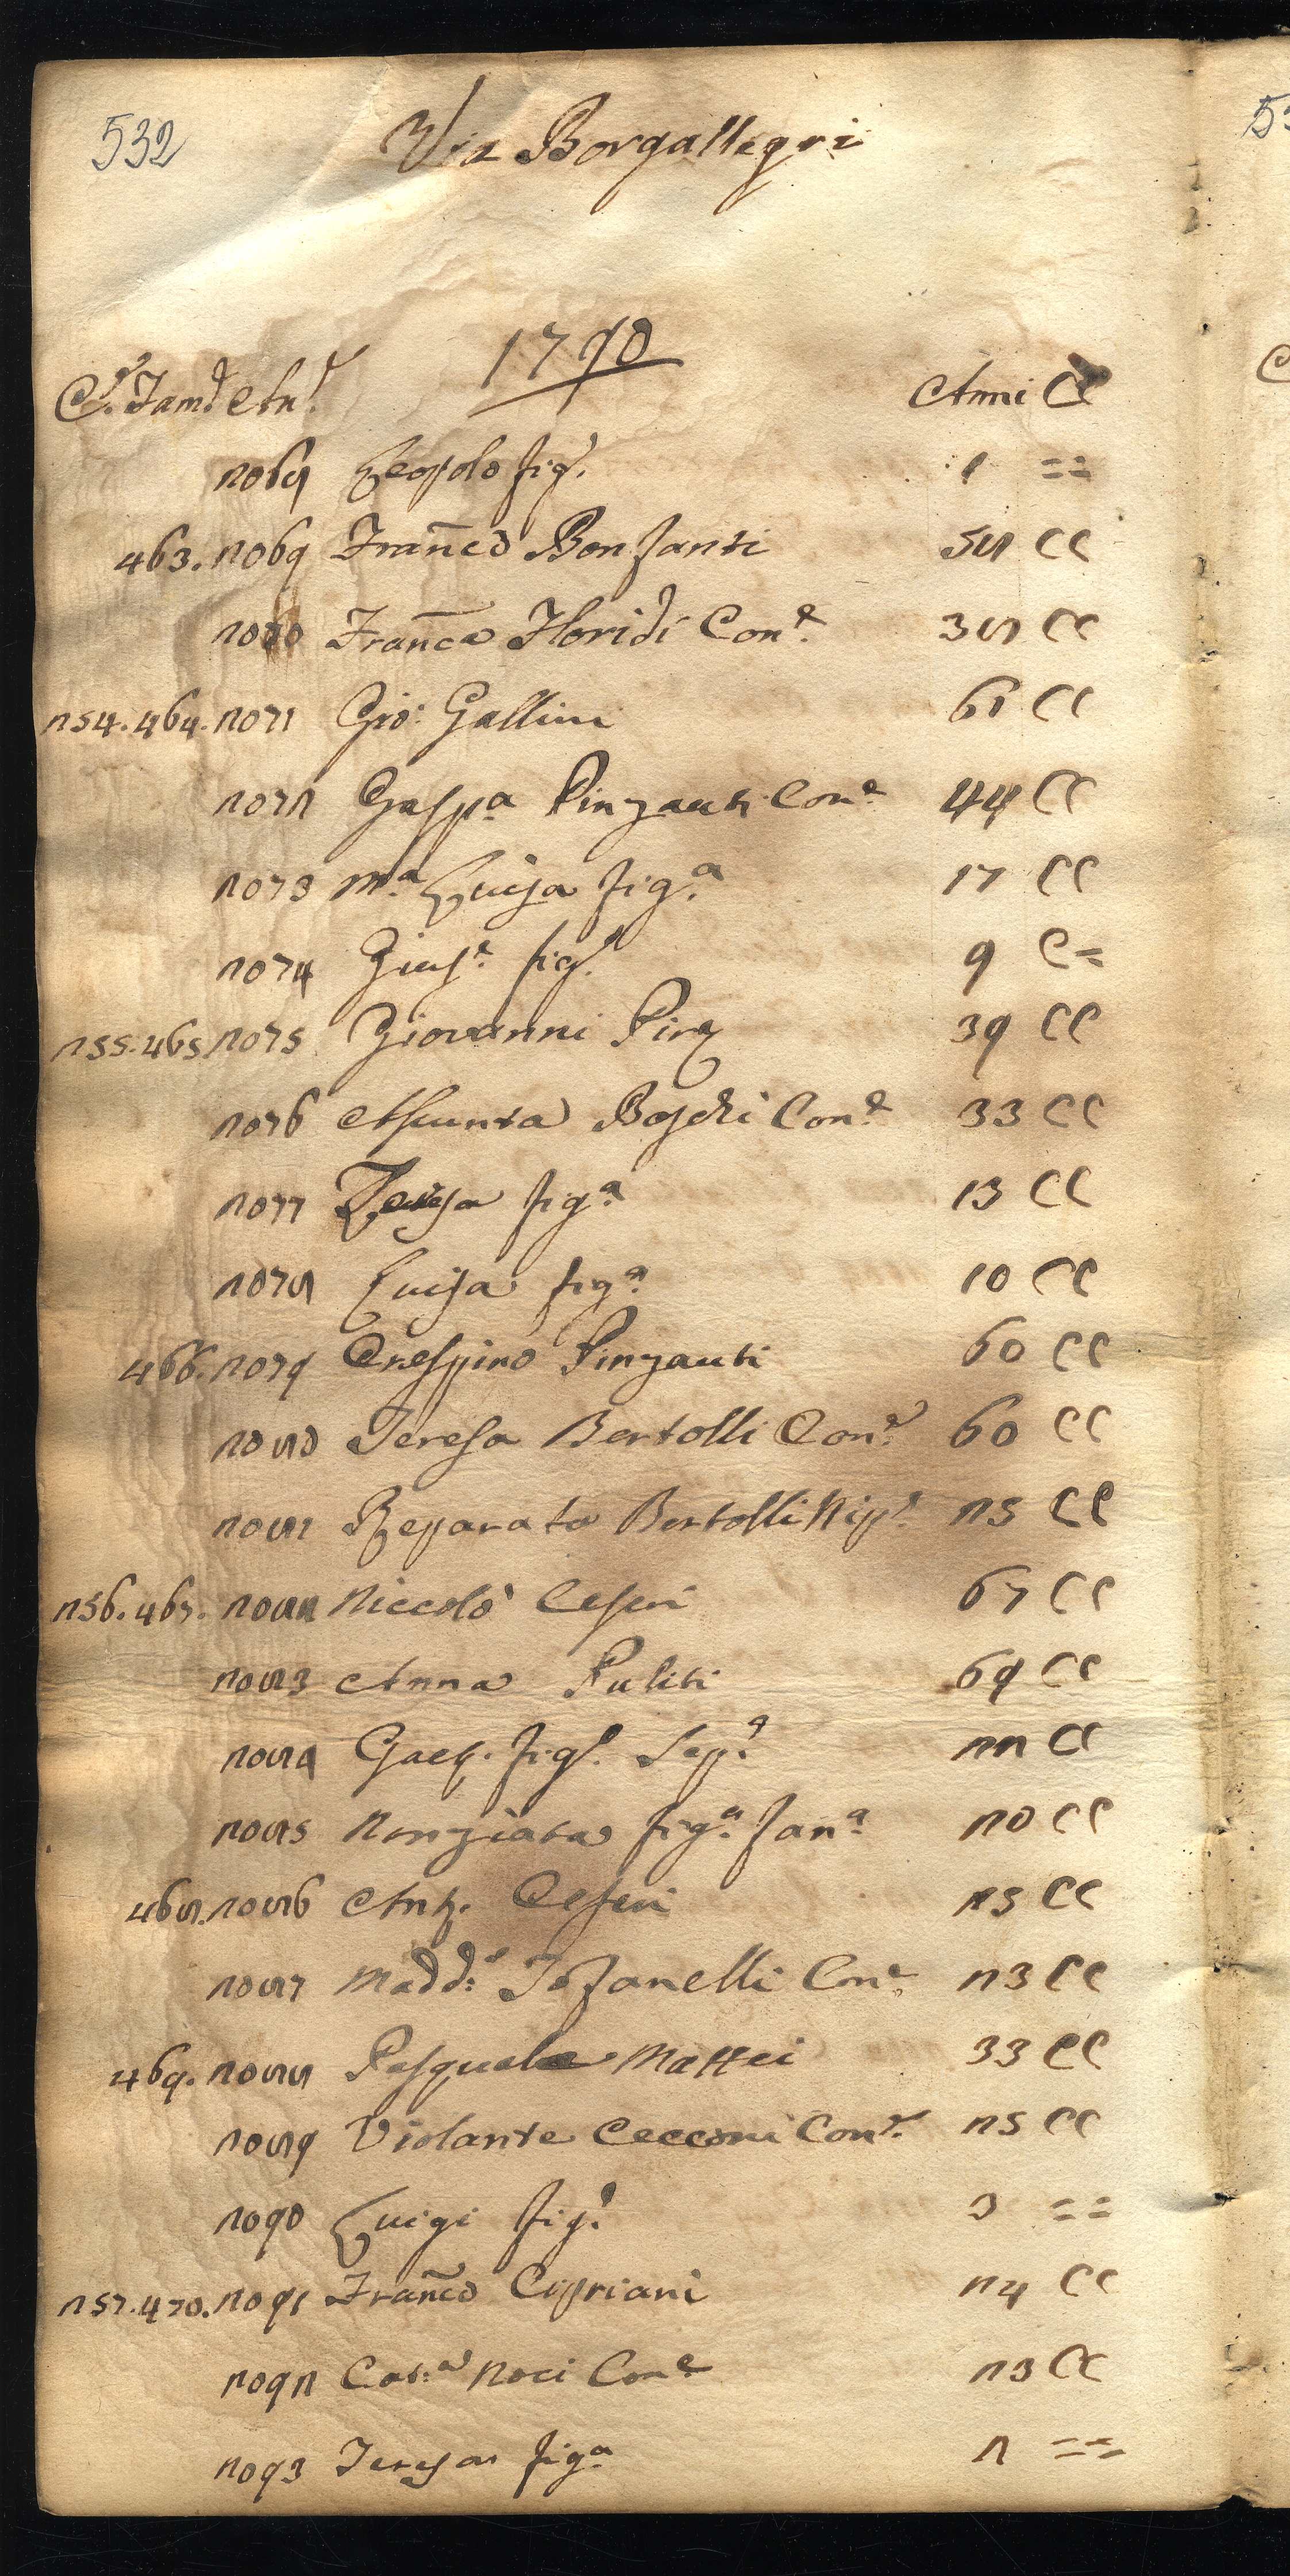 532
Via Borgallegri
1790
C.e Fam.e An.e Anni CC
2068 Leopolo fig.o 1 ==
463. 2069 Franco Bonfanti 58 CC
2070 Franca Floridi Con.e 38 CC
254. 464. 2071 Gio: Gallini 61 CC
2072 Gasp.a Pinzauti Con.e 44 CC
2073 M.a Luisa fig.a 17 CC
2074 Gius.e fig.o 9 C=
255. 465 2075 Giovanni Pinz 39 CC
2076 Assunta Boschi Con.e 33 CC
2077 Teresa fig.a 13 CC
2078 Luisa fig.a 10 CC
466. 2079 Crespino Pinzauti 60 CC
2080 Teresa Bertolli Con.e 60 CC
2081 Reparata Bertolli Nip.e 25 CC
256. 467. 2082 Niccolò Cesari 67 CC
2083 Anna Puliti 69 CC
2084 Gaet. figl. Sep.a 22 CC
2085 Nunziata fig.a fan.a 20 CC
468. 2086 Ant. Cesari 25 CC
2087 Madd: Tofanelli Con.e 23 CC
469. 2088 Pasquale Mattei 33 CC
2089 Violante Cecconi Con.e 25 CC
2090 Luigi fig.o 3 ==
257. 470. 2091 Franco Cipriani 24 CC
2092 Cat:a Noci Con.e 23 CC
2093 Teresa fig.a 2 ==